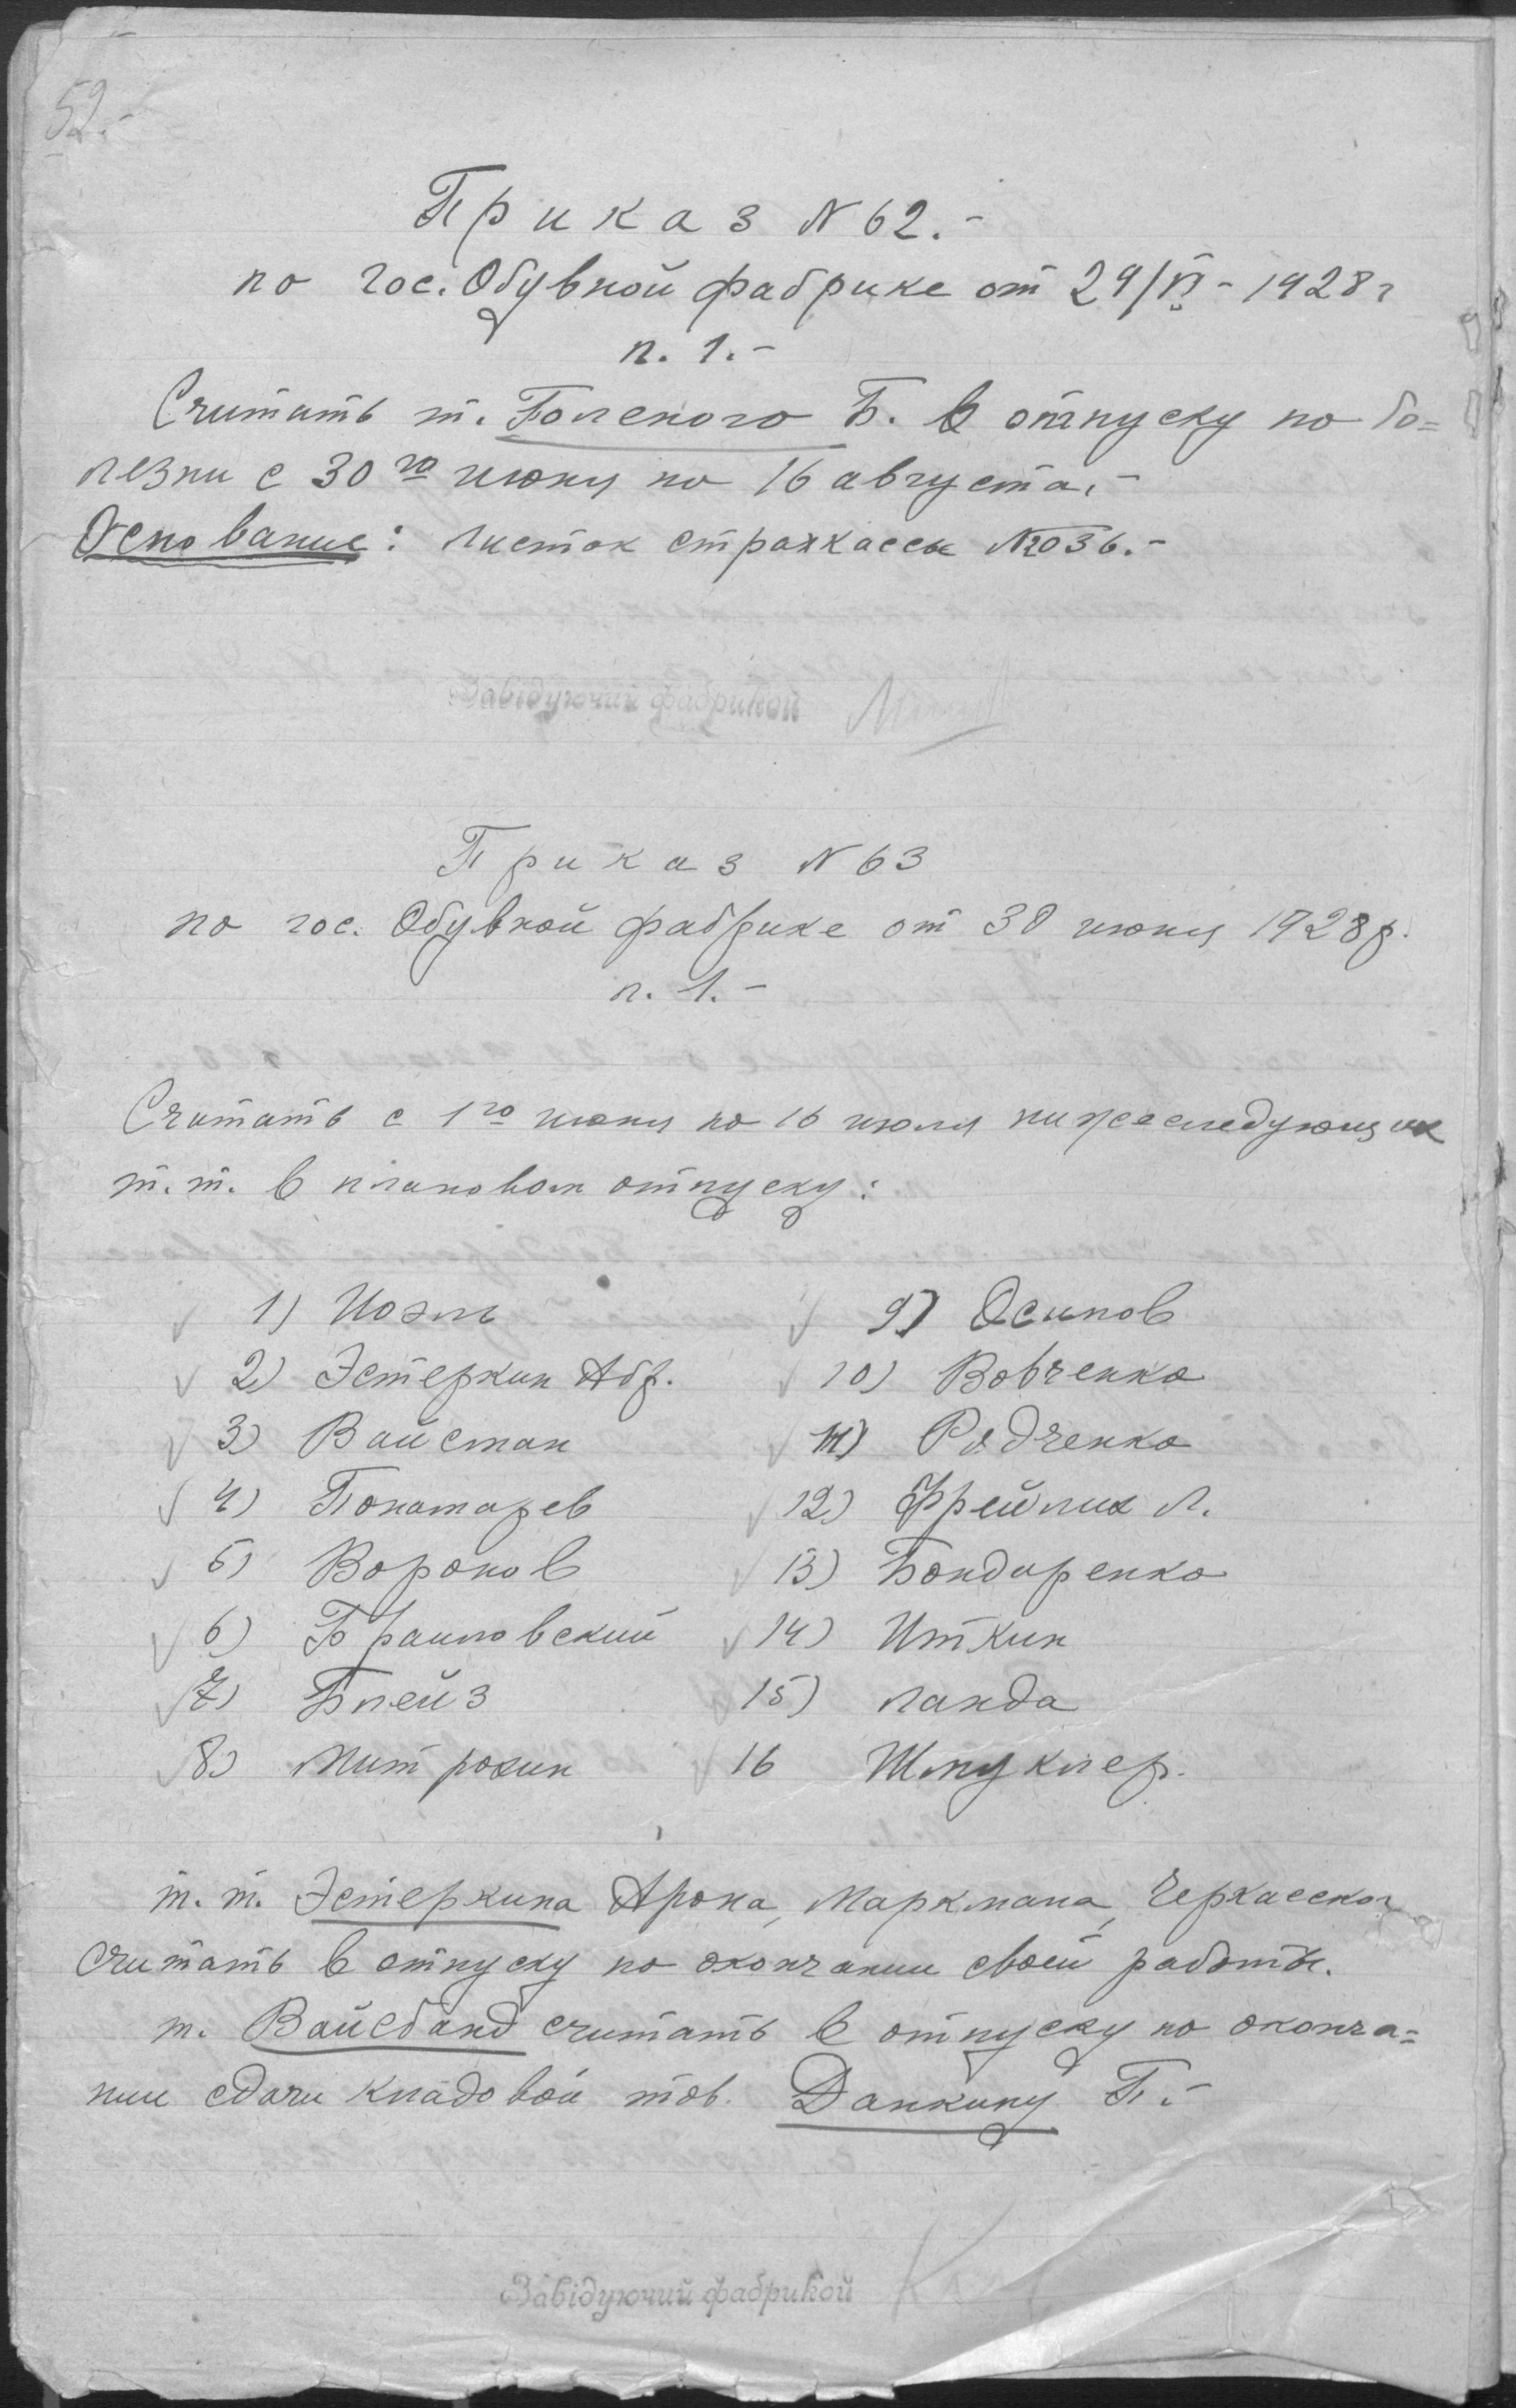 52.-
Приказ N 62.-
по гос. Обувной фабрике от 29/VI - 1928 г
п. 1.-
Считать т. Болского Б. в отпуску по бо=
лезни с 30го июня по 16 августа.-
Основание: листок страхкассы №036.-
Завідуючий фабрикой
Приказ N 63
по гос. Обувной фабрике от 30 июня 1928 р.
п. 1.-
Считать с 1го июня по 16 июля нижеследующих
т.т. в плановом отпуску:
1) Иоэль
2) Эстеркин Абр.
3) Вайсман
4) Понамарев
5) Воронов
6) Браиловский
7) Блейз
8) Митрохин
9) Осипов
10) Вовченко
11) Радченко
12) Фрейлих Л.
13) Бондаренко
14) Иткин
15) Ланда
16 Шмуклер.
т.т. Эстеркина Арона, Маркмана, Черкасского
считать в отпуску по окончании своей работы.
т. Вайсбанд считать в отпуску по оконча=
нии сдачи кладовой тов. Данкину П.-
Завідуючий фабрикой